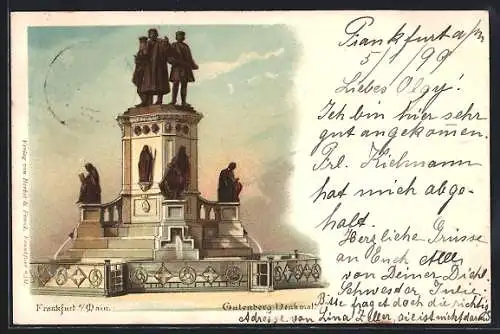 Frankfurt a/M
5/1/99
Liebes Olgy!
Ich bin hier sehr
gut angekommen.
Frl. Kiehmann
hat mich abge-
holt.
Herzliche Grüsse
an Euch Alle
von Deiner Dich l.
Schwester, Julie.
Bitte fragt doch die richtig
Adresse von Lina Zeller, die ist nicht da
Frankfurt a/Main.
Gutenberg Denkmal.
Verlag von
Frankfurt a/M.